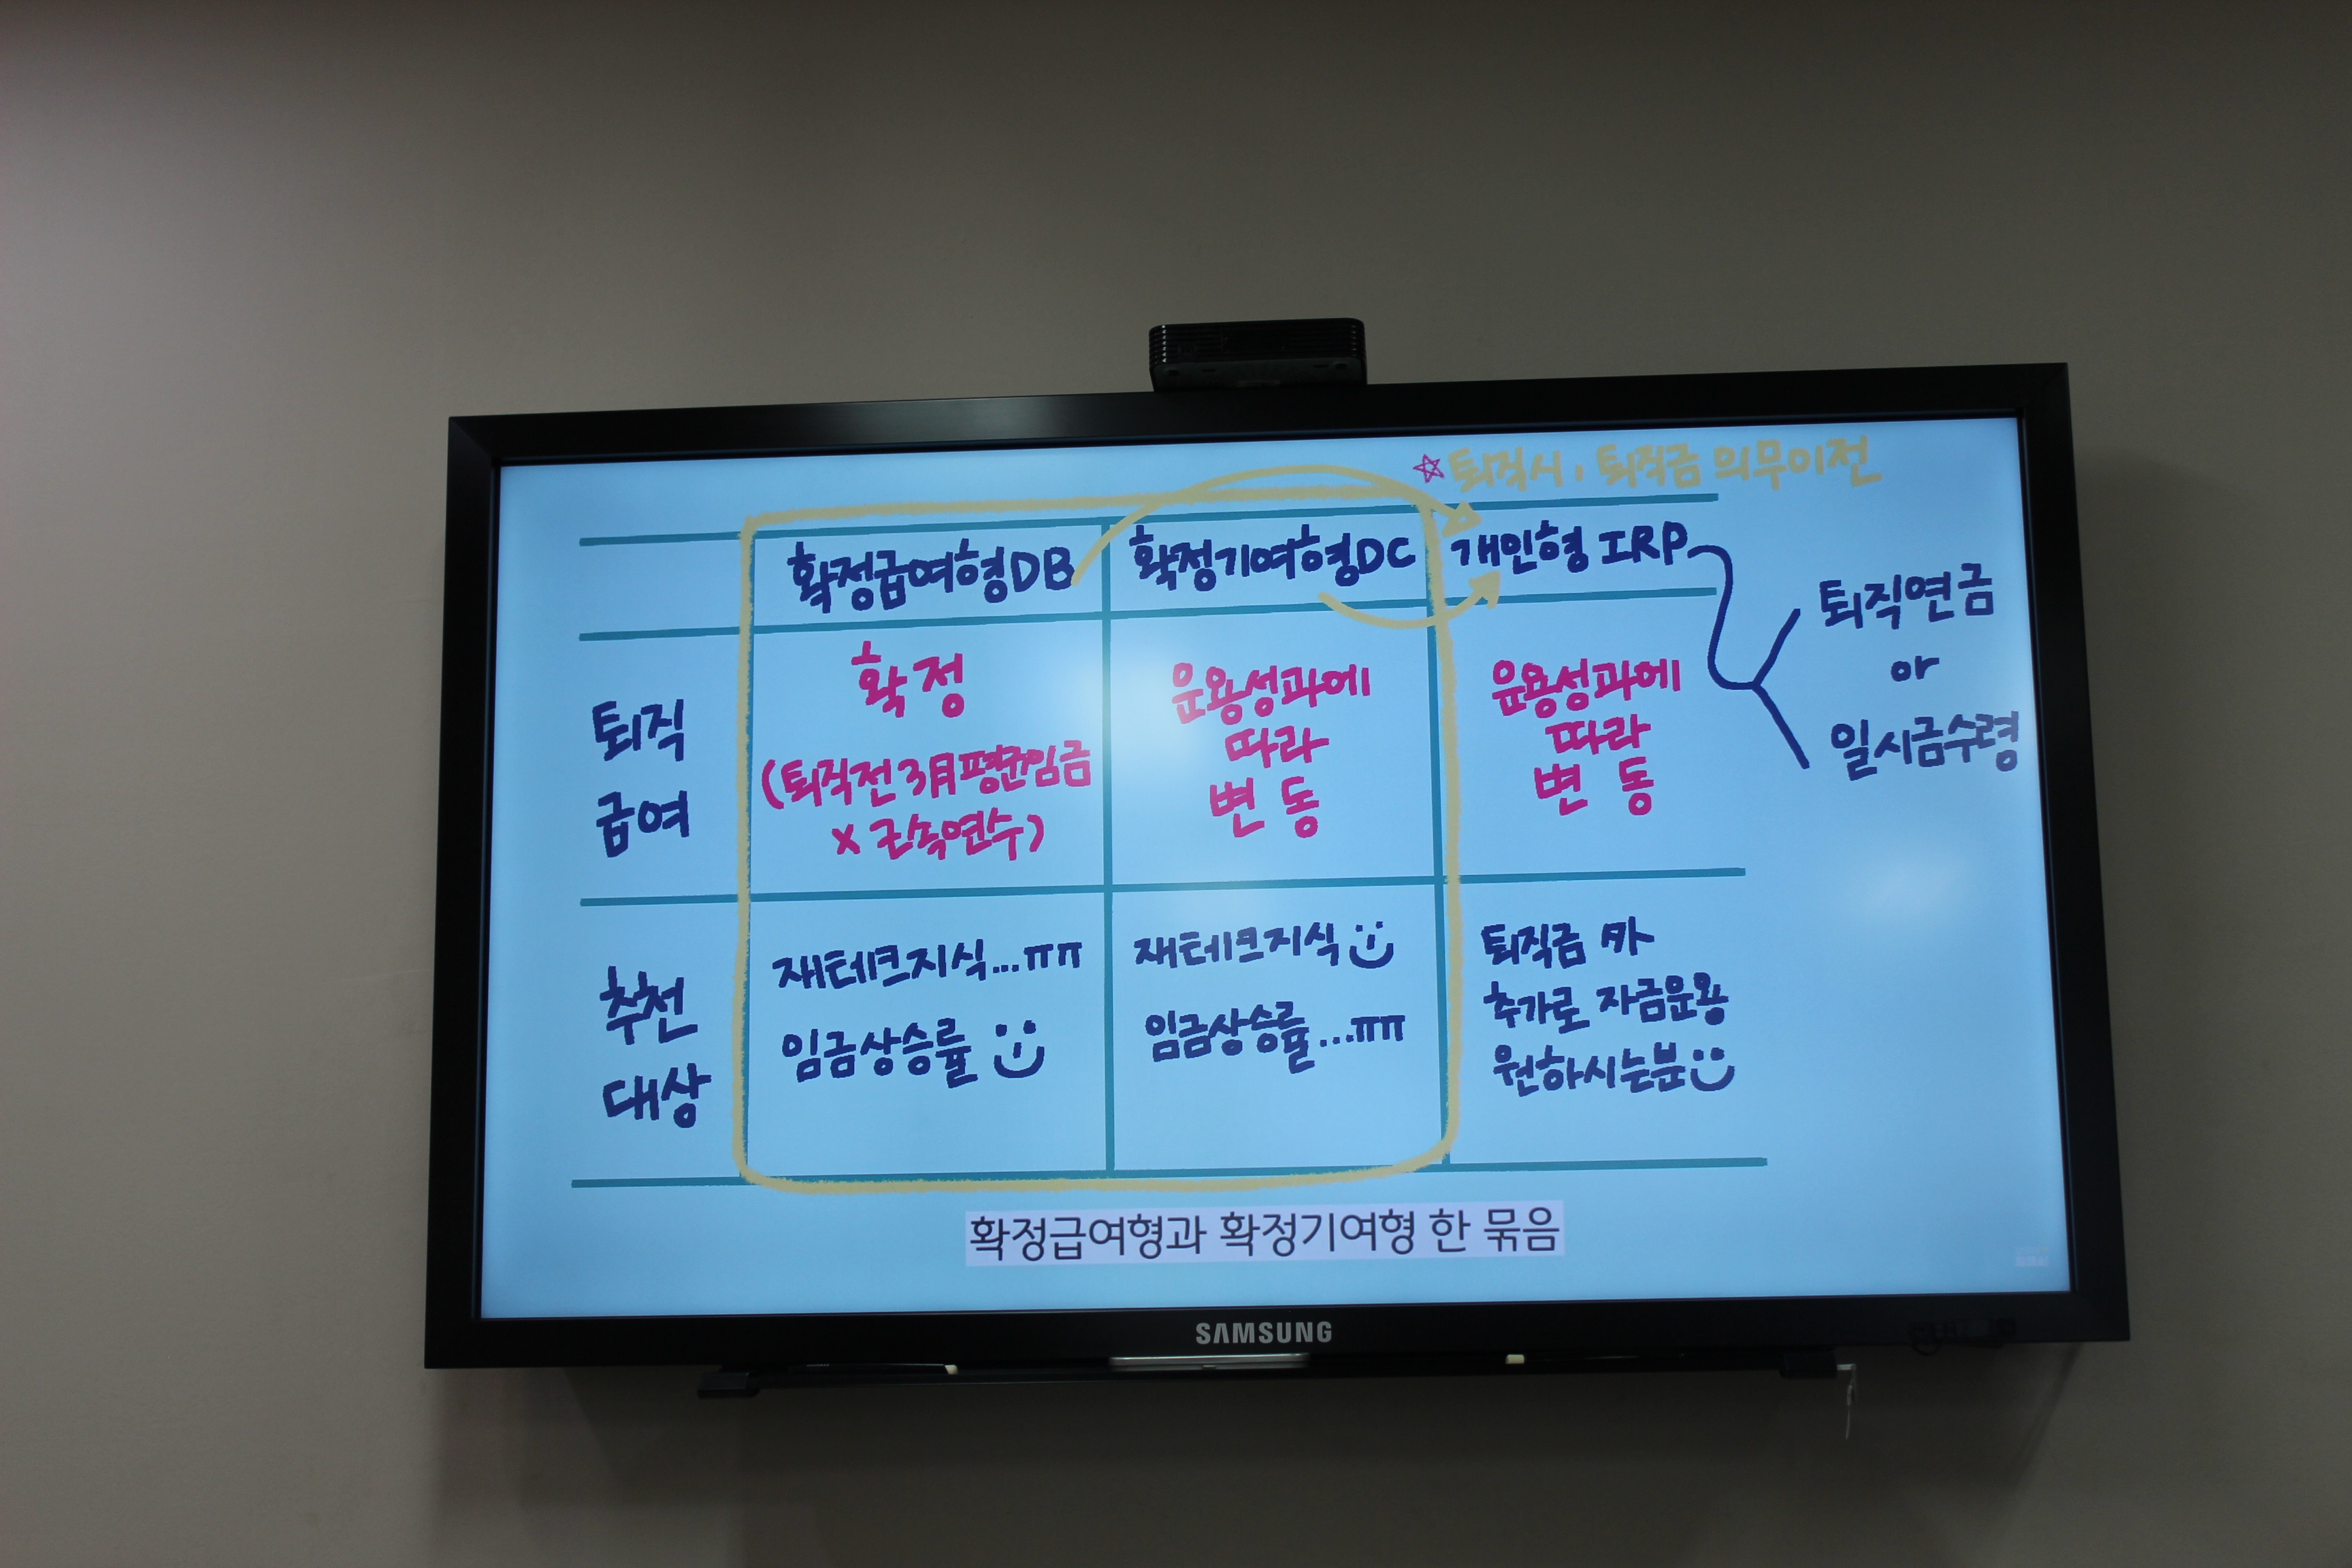 ☆ 퇴직시, 퇴직금 의무이전
확정급여형DB 확정기여형DC 개인형 IRP
퇴직연금
or
일시금수령
퇴직
급여
확정
(퇴직전 3月평균임금
x 근속연수)
운용성과에
따라
변동
운용성과에
따라
변동
추천
대상
재테크지식...ㅠㅠ
임금상승률
재테크지식
임금상승률...ㅠㅠ
퇴직금 外
추가로 자금운용
원하시는분
확정급여형과 확정기여형 한 묶음
SAMSUNG